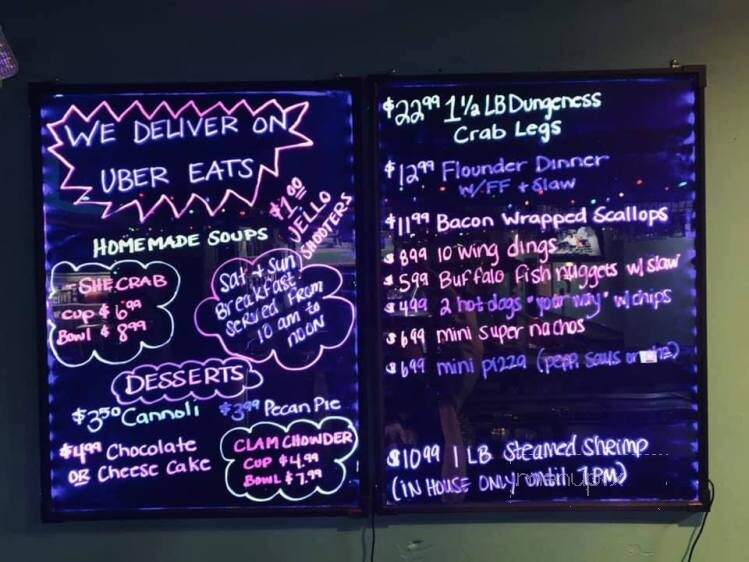 WE DELIVER ON
UBER EATS
$1.00
JELLO
SHOOTERS
HOMEMADE SOUPS
SHE CRAB
CUP $6.99
Bowl $8.99
Sat + Sun
Breakfast
Served From
10 am to
NOON
DESSERTS
$3.50 Cannoli
$3.99 Pecan Pie
$4.99 Chocolate
OR Cheese Cake
CLAM CHOWDER
CUP $4.99
BOWL $7.99
$22.99 1 1/2 LB Dungeness
Crab Legs
$12.99 Flounder Dinner
W/FF + Slaw
$11.99 Bacon Wrapped Scallops
$8.99 10 wing dings
$5.99 Buffalo Fish nuggets w/slaw
$4.99 2 hot dogs "your way" w/chips
$6.99 mini super nachos
$6.99 mini pizza (pepp, saus or
$10.99 1 LB Steamed Shrimp
(IN HOUSE ONLY until 7PM)